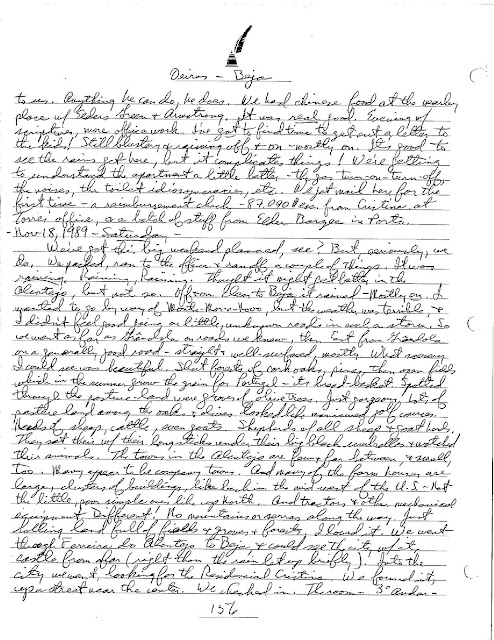 Oeiras - Beja
to us. Anything he can do, he does. We had chinese food at the nearby
place w/ Elders Green & Armstrong. It was real good. Evening of
scriptures, more office work. I've got to find time to get out a letter to
the kids! Still blustery & raining off & on - mostly on. It's good to
see the rains get here, but it complicates things! We're getting
to understand the apartment a little better - the gas turn-on - turn-off,
the noises, the toilet idiosyncracies, etc. We got mail here for the
first time - a reimbursement check - 87,090 from Cristina at
Torres office, & a batch of stuff from Elder in Porto.
- Nov 18, 1989 - Saturday -
We've got this big weekend planned, see? But, seriously, we
do. We packed, ran to the office & ran off a couple of things. It was
raining, Raining, Raining. Thought it might get better in the
Alentejo, but not so. Off from to Beja it rained - Mostly on. I
wanted to go by way of Monte-Mor-o-Novo, but the weather was terrible, &
I didn't feel good going on little, unknown roads in such a storm. So
we went as far as Grandola on roads we knew, then East from Grandola
on a generally good road - straight & well-surfaced, mostly. What scenery
I could see was beautiful. Short forests of cork oaks, pines, then open fields
which in the summer grow the grain for Portugal - its bread-basket. Spotted
through the pasture-land were groves of olive trees. Just gorgeous. Lots of
pasture land among the oaks & olives looked like manicured golf courses.
Herds of sheep, cattle, even goats. Shepherds w/ all sheep & goat herds.
They sat there w/ their long sticks under their big black umbrellas & watched
their animals. The towns in the Alentejo are few & far between, & small,
too. Many appear to be company towns. And many of the farm houses are
large, clusters of buildings, like back in the mid-west of the U.S. - Not
the little, poor simple ones like up North. And tractors & other mechanical
equipment. Different! No mountains or serras along the way. Just
rolling land full of fields & groves & forests. I loved it. We went
through Ferreira do Alentejo to Beja, & could see the city w/ its
castle from afar (right then the rain let up briefly). Into the
city we went, looking for the Residencial Cristina. We found it,
up a street near the center. We checked in. The room - 3º Andar -
156